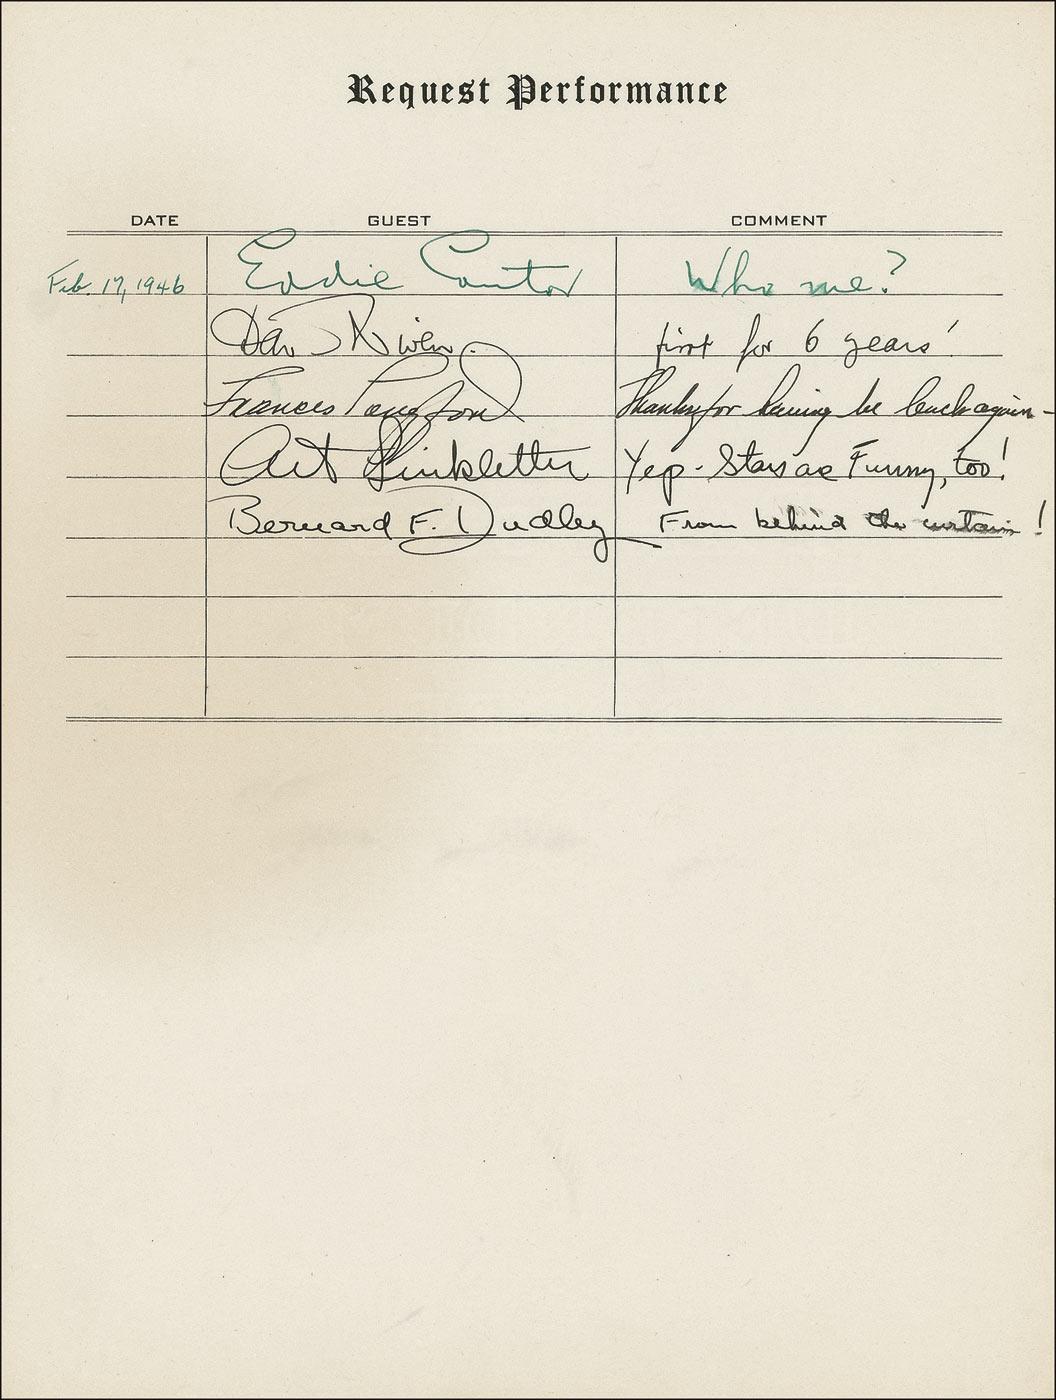 Request Performance
DATE GUEST COMMENT
Feb. 17, 1946 Eddie Cantor Who me?
David Niven. first for 6 years!
Frances Langford Thanks for having me back again -
Art Linkletter Yep - Stars are Funny, too!
Bernard F. Dudley From behind the curtain!